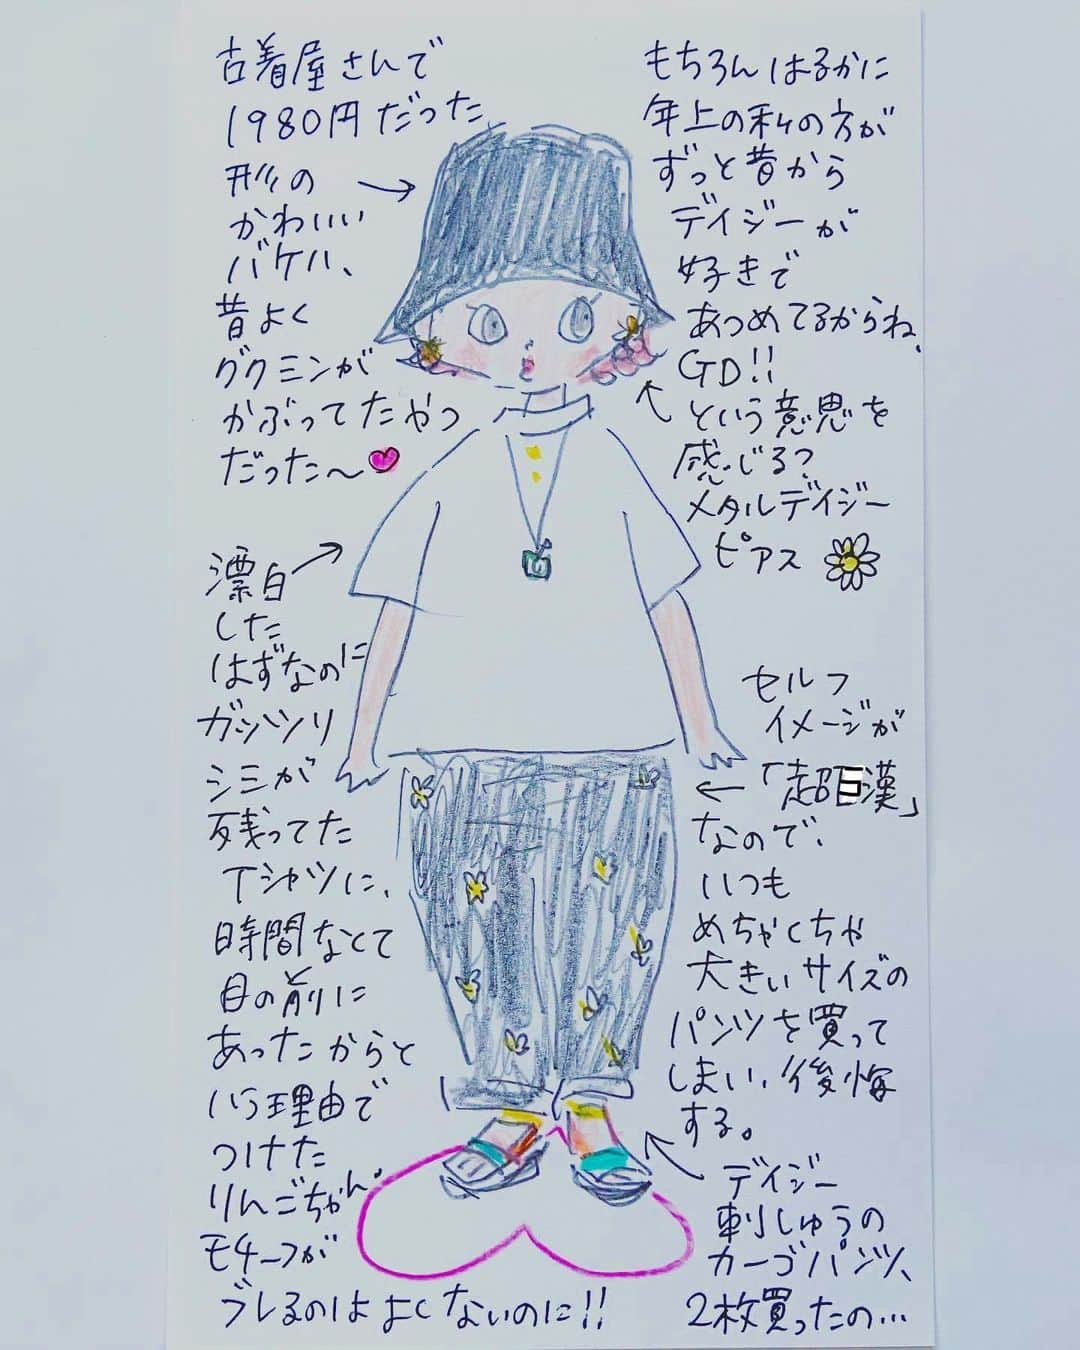 古着屋さんで
1980円だった
形の
かわいい
バケハ、
昔よく
グクミンが
かぶってたやつ
だった〜
漂白
した
はずなのに
ガッツリ
シミが
残ってた
Tシャツに、
時間なくて
目の前に
あったからと
いう理由で
つけた
りんごちゃん。
モチーフが
ブレるのはよくないのに!!
もちろんはるかに
年上の私の方が
ずっと昔から
デイジーが
好きで
あつめてるからね、
GD!!
という意思を
感じる?
メタルデイジー
ピアス
セルフ
イメージが
「超巨漢」
なので、
いつも
めちゃくちゃ
大きいサイズの
パンツを買って
しまい、後悔
する。
デイジー
刺しゅうの
カーゴパンツ、
2枚買ったの…